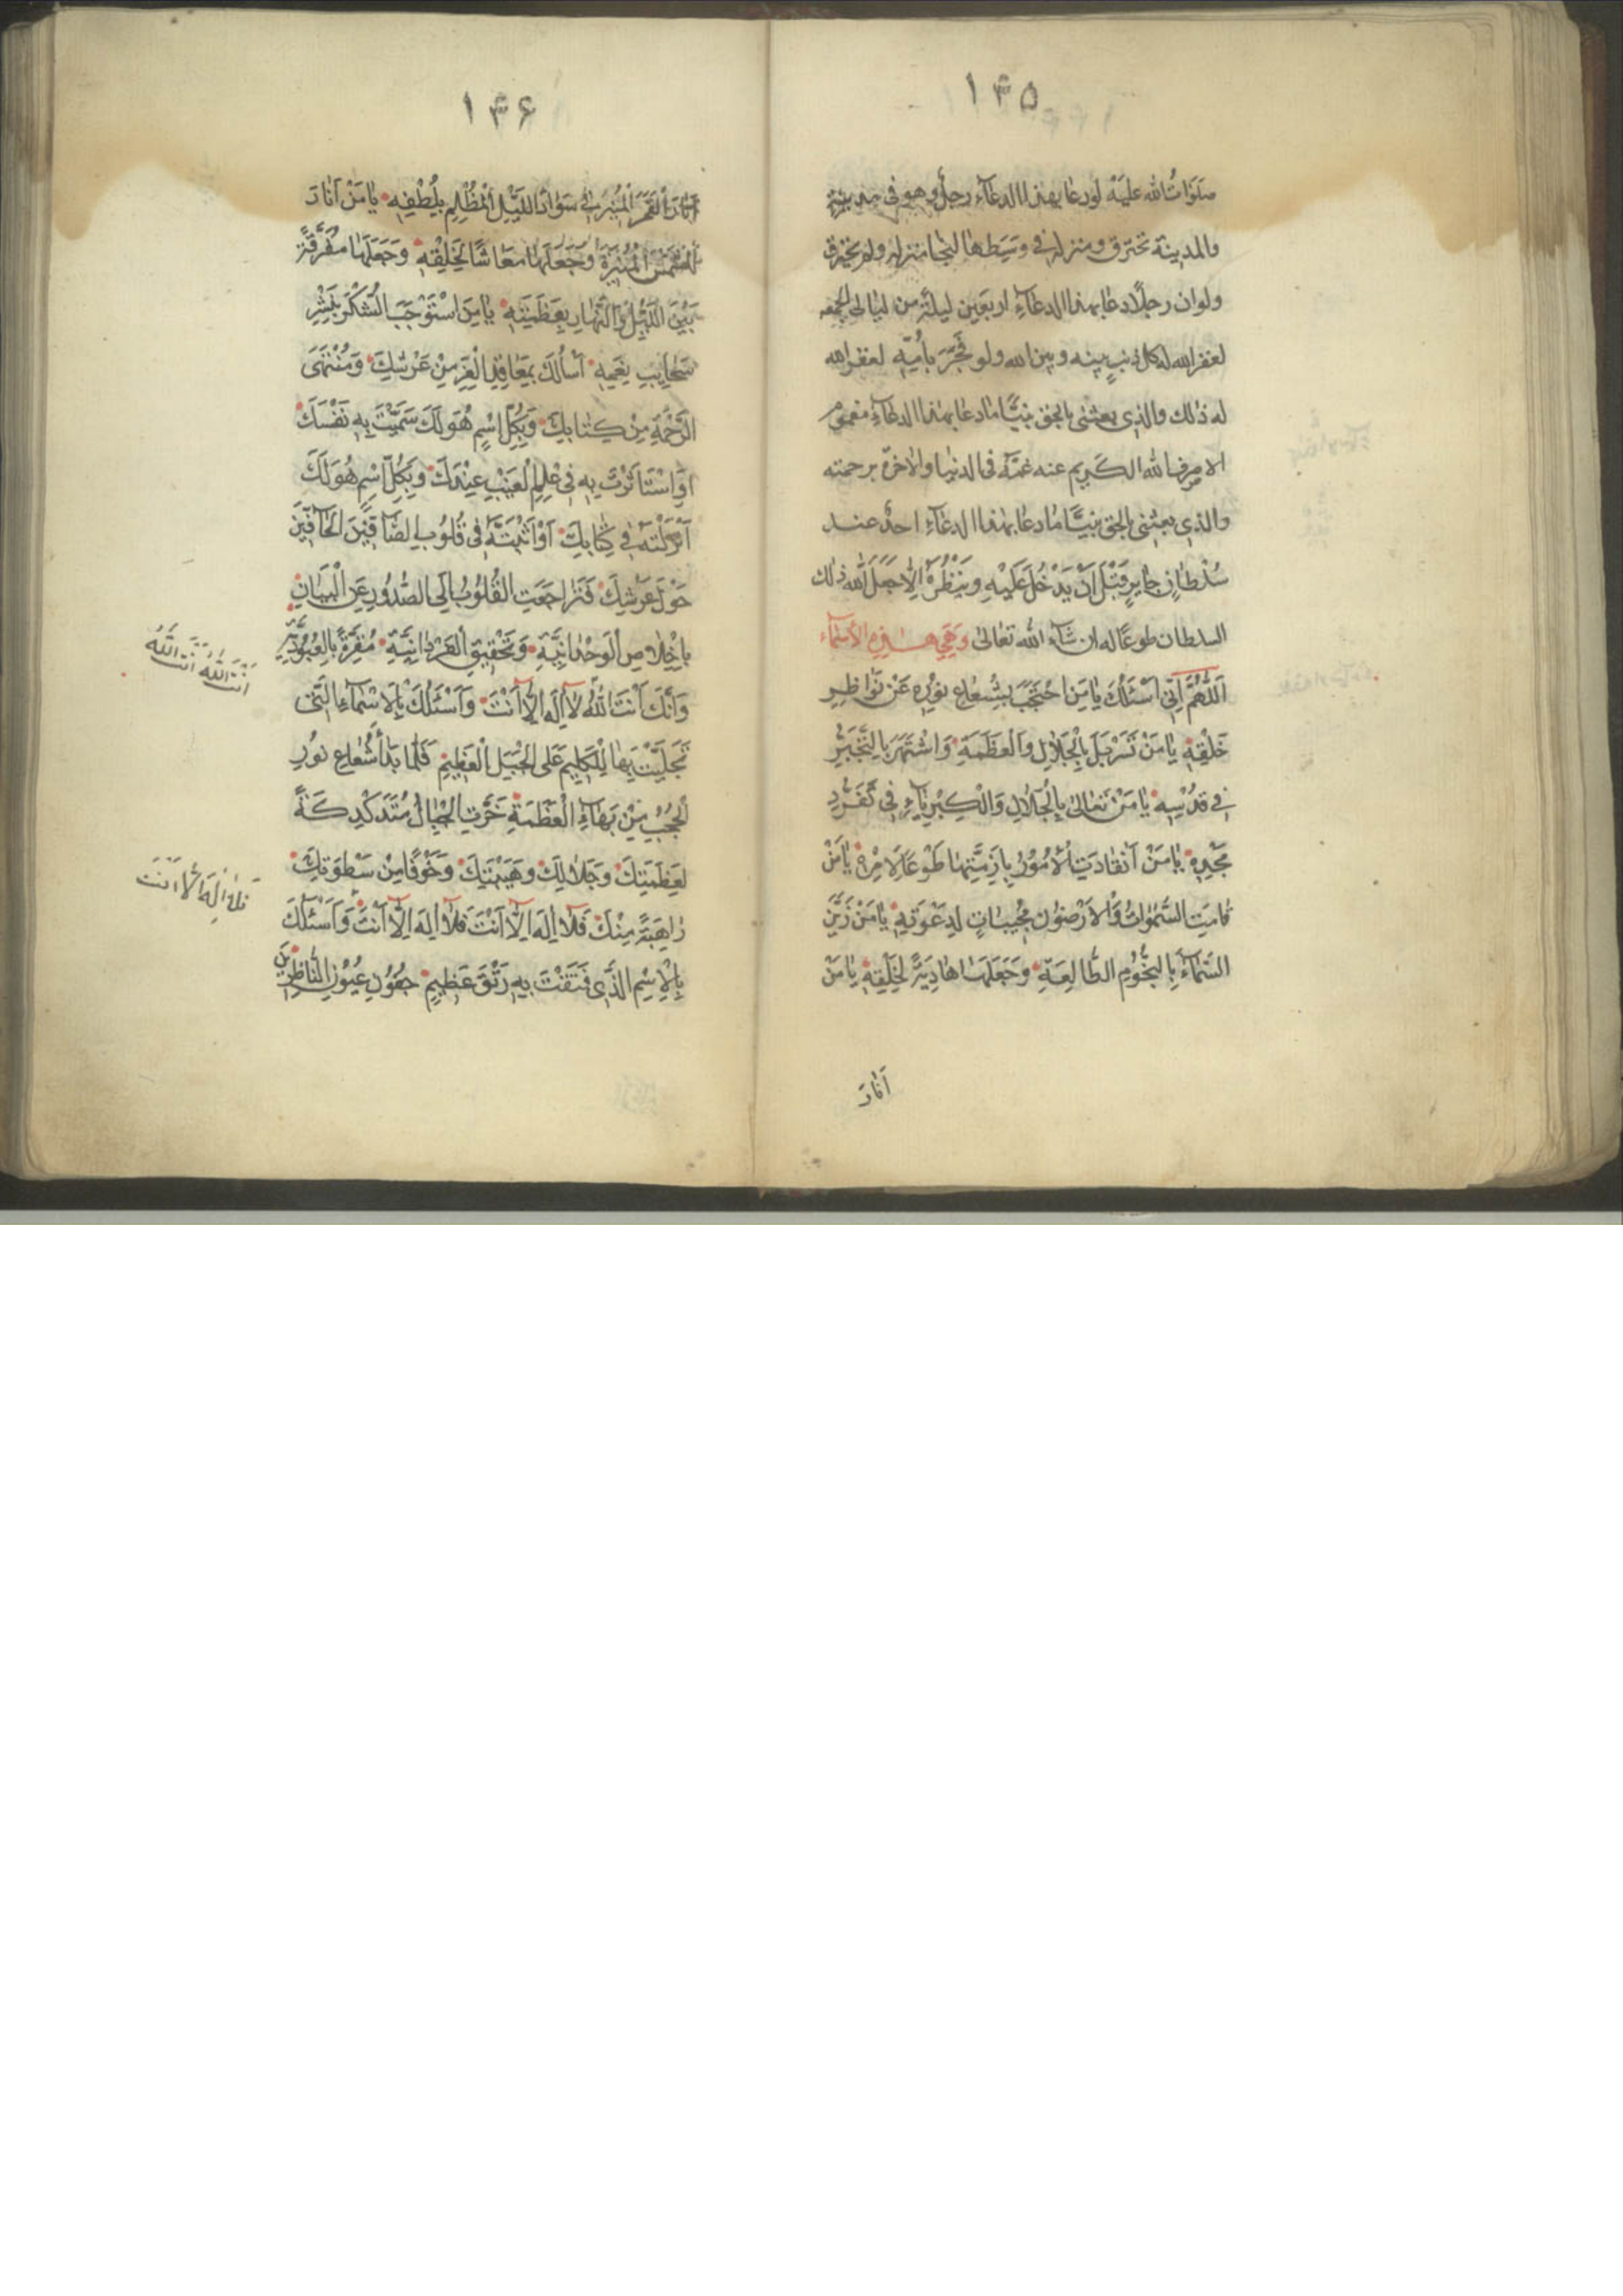 ۱۳۵
صَلَوَاتُ الله عليَهْ لو دعٰا بهذا الدعاۤء رجلٌ وهو فى مدينةٍ
والمدينة تحترق ومنزله فى وَسَطهٰا لنجٰا منزله ولم يحترق
ولو ان رجلًا دعٰا بهذا الدعاۤءِ اربعين ليلة من ليٰالى الجمعه
لغفر الله له كل ذنبٍ بينه وبين الله ولو فَجَرَ بأمّهِ لغفر الله
له ذٰلك والذى بعثنى بالحق نبيًّا مٰا دعٰا بهذا الدعٰاۤءِ مغموم
الا صرف الله الكَريم عنه غمَّهُ فى الدنيٰا والاٰخرة برحمته
والذى بعثنى بالحق نبيًّا مٰا دعٰا بهذا الدعٰاۤءِ احدٌ عنــد
سُلْطٰانٍ جٰايرٍ قَبْلَ اَنْ يَدْخُلَ عَلَيْهِ وَيَنْظُرَهُ اِلّٰا جَعَلَ اللّٰه ذٰلك
السلطان طوعًا له ان شٰاۤء اللّٰه تعٰالىٰ وَهِىَ هــٰذِهِ الأسْمٰاۤء
اَللّٰهُمَّ اِنّى اَسْئَلُكَ يٰا مَنِ احْتَجَبَ بِشُعٰاعِ نُورِهِ عَنْ نَوٰاظِرِ
خَلْقِهِ يٰا مَنْ تَسَرْبَلَ بِالْجَلاٰلِ وَالْعَظَمَةِ وَاشْتَهَرَ بِالتَّجَبُّرِ
فى قُدْسِهِ يٰا مَنْ تَعٰالىٰ بِالْجَلاٰلِ وَالْكِبْرِيٰاۤءِ فى تَفَرُّدِ
مَجْدِهِ يٰا مَنْ اَنْقٰادَتِ الْاُمُوْرُ بِاَزِمَّتِهٰا طَوْعًا لِاَمْرِهِ يٰا مَنْ
قٰامَتِ السَّمٰوٰاتُ وَالْاَرَضُوْنَ مُجيبٰاتٍ لِدَعْوَتِهِ يٰا مَنْ زَيَّنَ
السَّمٰاۤءَ بِالنُّجُوْمِ الطّٰالِعَةِ وَجَعَلَهٰا هٰادِيَةً لِخَلْقِهِ يٰا مَنْ
اَنٰارَ
۱۳۶
اَنٰارَ الْقَمَرَ الْمُنيرَ فى سَوٰادِ اللَّيْلِ الْمُظْلِمِ بِلُطْفِهِ يٰا مَنْ اَنٰارَ
الشَّمْسَ الْمُنيرَةَ وَجَعَلَهٰا مَعٰاشًا لِخَلْقِهِ وَجَعَلَهٰا مُفَرِّقَةً
بَيْنَ اللَّيْلِ وَالنَّهٰارِ بِعَظَمَتِهِ يٰا مَنِ اسْتَوْجَبَ الشُّكْرَ بِنَشْرِ
سَحٰايِبِ نِعَمِهِ اَسْأَلُكَ بِمَعٰاقِدِ الْعِزِّ مِنْ عَرْشِكَ وَمُنْتَهَى
الرَّحْمَةِ مِنْ كِتٰابِكَ وَبِكُلِّ اسْمٍ هُوَ لَكَ سَمَّيْتَ بِهِ نَفْسَكَ
اَوِ اسْتَاْثَرْتَ بِهِ فى عِلْمِ الْغَيْبِ عِنْدَكَ وَبِكُلِّ اسْمٍ هُوَ لَكَ
اَنْزَلْتَهُ فى كِتٰابِكَ اَوْ اَثْبَتَّهُ فى قُلُوْبِ الصّٰاۤفّيْنَ الْحٰاۤفّيْنَ
حَوْلَ عَرْشِكَ فَتَرٰاجَعَتِ الْقُلُوْبُ اِلَى الصُّدُوْرِ عَنِ الْبَيٰانِ
بِاِخْلاٰصِ الْوَحْدٰانِيَّةِ وَتَحْقيقِ الْفَرْدٰانِيَّةِ مُقِرَّةً بِالْعُبُوْدِيَّةِ
وَأَنَّكَ اَنْتَ اللّٰهُ لاٰ اِلٰهَ اِلّاٰ اَنْتَ وَاَسْئَلُكَ بِالْاَسْمٰاۤءِ الَّتى
تَجَلَّيْتَ بِهٰا لِلْكَليمِ عَلَى الْجَبَلِ الْعَظيمِ فَلَمّٰا بَدٰا شُعٰاعُ نُوْرِ
الْحُجُبِ مِنْ بَهٰاۤءِ الْعَظَمَةِ خَرَّتِ الْجِبٰالُ مُتَدَكْدِكَةً
لِعَظَمَتِكَ وَجَلاٰلِكَ وَهَيْبَتِكَ وَخَوْفًا مِنْ سَطْوَتِكَ
رٰاهِبَةً مِنْكَ فَلاٰ اِلٰهَ اِلّاٰ اَنْتَ فَلاٰ اِلٰهَ اِلّاٰ اَنْتَ وَاَسْئَلُكَ
بِالْاِسْمِ الَّذى فَتَقْتَ بِهِ رَتْقَ عَظيمِ جُفُوْنِ عُيُوْنِ النّٰاظِرِيْنَ
اَنْتَ اللّٰهُ اَنْتَ اللّٰهُ
فَلاٰ اِلٰهَ اِلّاٰ اَنْتَ